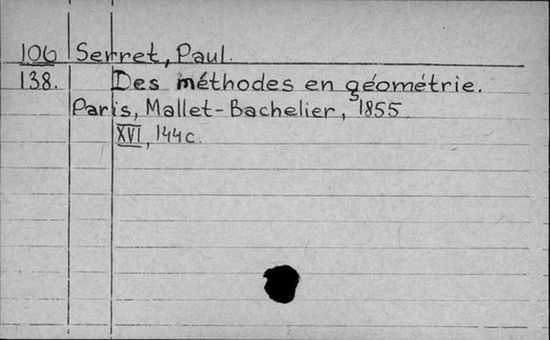 106 Serret, Paul.
138. Des méthodes en géométrie.
Paris, Mallet-Bachelier, 1855.
XVI, 144 c.